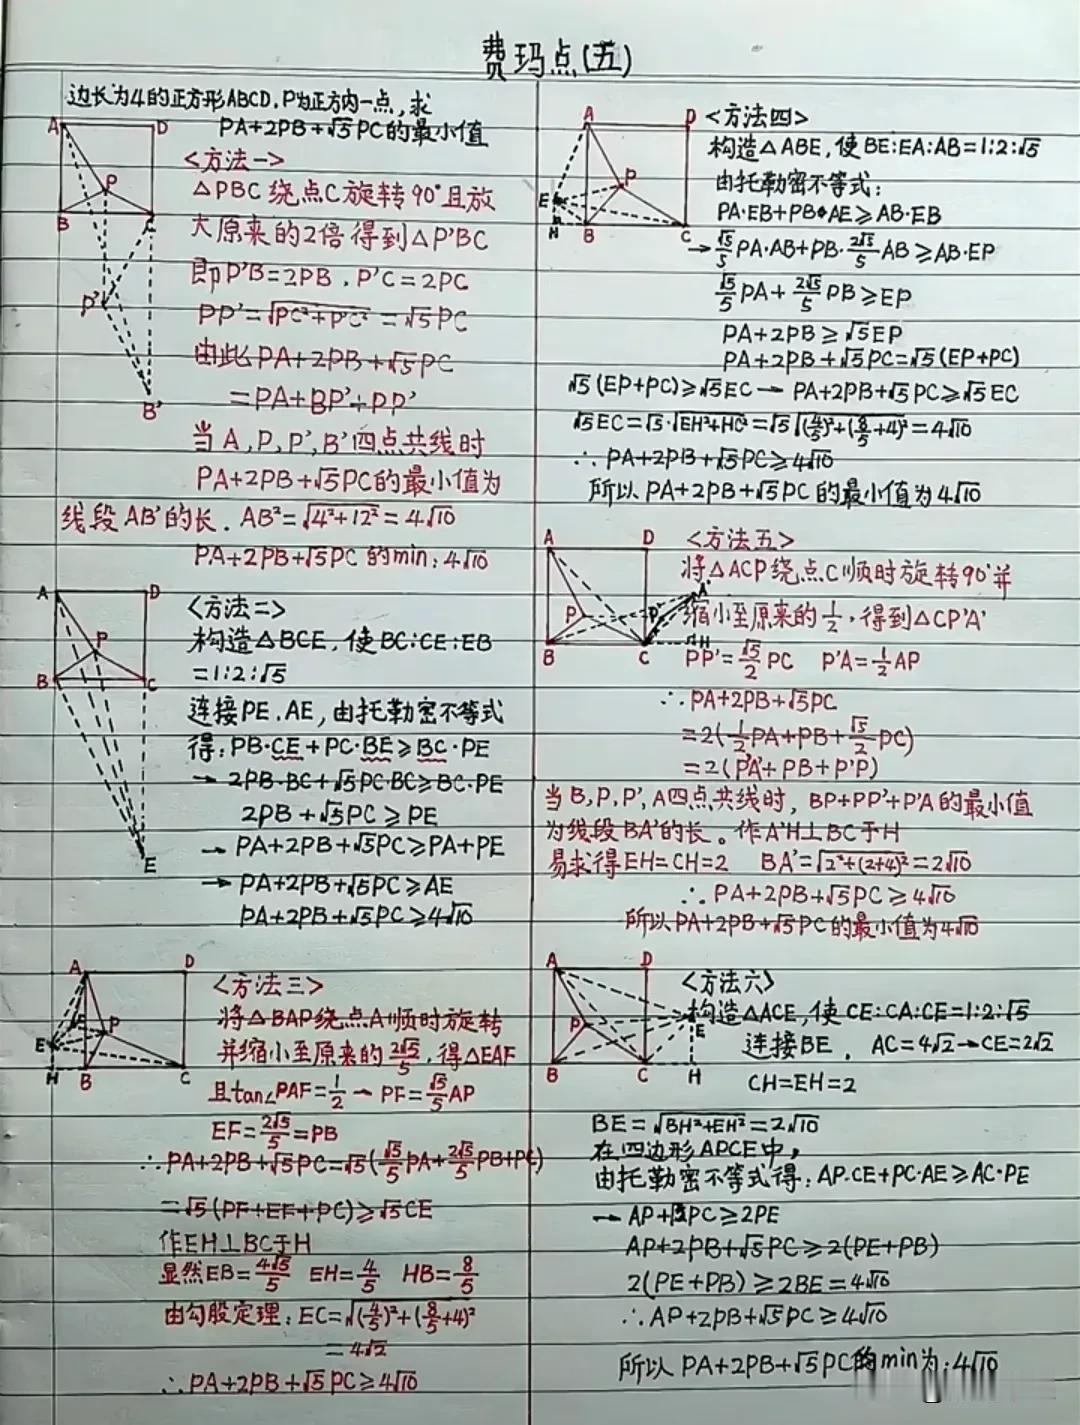 费玛点(五)
边长为4的正方形ABCD,P为正方内一点,求
PA+2PB+√5PC的最小值
A
D
P
B
C
P'
B'
<方法一>
△PBC绕点C旋转90°且放
大原来的2倍得到△P'BC
即P'B=2PB,P'C=2PC
PP'=√PC²+P'C²=√5PC
由此PA+2PB+√5PC
=PA+BP'+PP'
当A,P,P',B'四点共线时
PA+2PB+√5PC的最小值为
线段AB'的长.AB²=√4²+12²=4√10
PA+2PB+√5PC的min:4√10
A
D
P
B
C
E
<方法二>
构造△BCE,使BC:CE:EB
=1:2:√5
连接PE.AE,由托勒密不等式
得:PB·CE+PC·BE≥BC·PE
→2PB·BC+√5PC·BC≥BC·PE
2PB+√5PC≥PE
→PA+2PB+√5PC≥PA+PE
→PA+2PB+√5PC≥AE
PA+2PB+√5PC≥4√10
A
D
P
E
H
B
C
<方法三>
将△BAP绕点A顺时旋转
并缩小至原来的2√5/5,得△EAF
且tan∠PAF=1/2→PF=√5/5AP
EF=2√5/5=PB
∴PA+2PB+√5PC=√5(√5/5PA+2√5/5PB+PC)
=√5(PF+EF+PC)≥√5CE
作EH⊥BC于H
显然EB=4√5/5 EH=4/5 HB=8/5
由勾股定理:EC=√(4/5)²+(8/5+4)²
=4√2
∴PA+2PB+√5PC≥4√10
A
D
P
E
H
B
C
<方法四>
构造△ABE,使BE:EA:AB=1:2:√5
由托勒密不等式:
PA·EB+PB·AE≥AB·EB
→√5/5PA·AB+PB·2√5/5AB≥AB·EP
√5/5PA+2√5/5PB≥EP
PA+2PB≥√5EP
PA+2PB+√5PC=√5(EP+PC)
√5(EP+PC)≥√5EC→PA+2PB+√5PC≥√5EC
√5EC=√5·√EH²+HC²=√5√(4/5)²+(8/5+4)²=4√10
∴PA+2PB+√5PC≥4√10
所以PA+2PB+√5PC的最小值为4√10
A
D
P
P'
A'
B
C
H
<方法五>
将△ACP绕点C顺时旋转90°并
缩小至原来的1/2,得到△CP'A'
PP'=√5/2PC P'A=1/2AP
∴PA+2PB+√5PC
=2(1/2PA+PB+√5/2PC)
=2(P'A'+PB+P'P)
当B,P,P',A四点共线时,BP+PP'+P'A的最小值
为线段BA'的长。作A'H⊥BC于H
易求得EH=CH=2 BA'=√2²+(2+4)²=2√10
∴PA+2PB+√5PC≥4√10
所以PA+2PB+√5PC的最小值为4√10
A
D
P
E
B
C
H
<方法六>
构造△ACE,使CE:CA:CE=1:2:√5
连接BE. AC=4√2→CE=2√2
CH=EH=2
BE=√BH²+EH²=2√10
在四边形APCE中,
由托勒密不等式得:AP·CE+PC·AE≥AC·PE
→AP+√5PC≥2PE
AP+2PB+√5PC≥2(PE+PB)
2(PE+PB)≥2BE=4√10
∴AP+2PB+√5PC≥4√10
所以PA+2PB+√5PC的min为:4√10